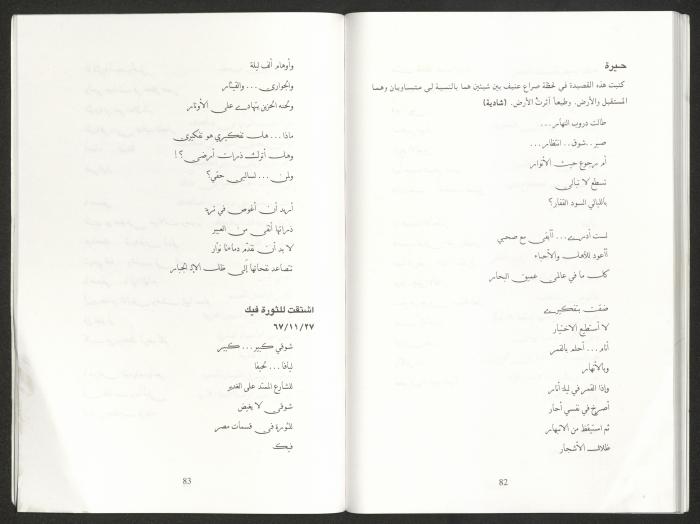 حيرة
كتبت هذه القصيدة في لحظة صراع عنيف بين شيئين هما بالنسبة لي متساويان وهما
المستقبل والأرض. وطبعاً آثرتُ الأرض. (شادية)
طالت دروب النهار...
صبر ..شوق.. انتظار...
أم رجوع حيث الأنوار
تسطع لا تبالي
بالليالي السود القفار؟
لست أدري... أأبقى مع صحبي
أأعود للأهل والأحباء
كل ما في عالمي عميق البحار
ضقت بتفكيري
لا أستطيع الاختيار
أنام... أحلم بالقمر
وبالأنهار
وإذا القمر في ليلة أنار
أصرخ في نفسي أحار
ثم استيقظ من الانبهار
ظلال الأشجار
82
وأوهام ألف ليلة
والجواري... والقيثار
ولحنه الحزين يتهادى على الأوتار
ماذا... هل تفكيري هو تفكيري
وهل أترك ذرات أرضي؟!
ولمن... لسالبي حقي؟
أريد أن أغوص في تربة
ذراتها أنقى من العبير
لا بد أن تقدّم دماءنا نوار
تتصاعد نفحاتها إلى ظلال الإله الجبار
اشتقت للثورة فيك
٦٧/١١/٢٧
شوقي كبير... كبير
لیافا... لحيفا
للشارع الممتد على الغدير
شوقي لا يغيض
للثورة في قسمات مصر
فيك
83